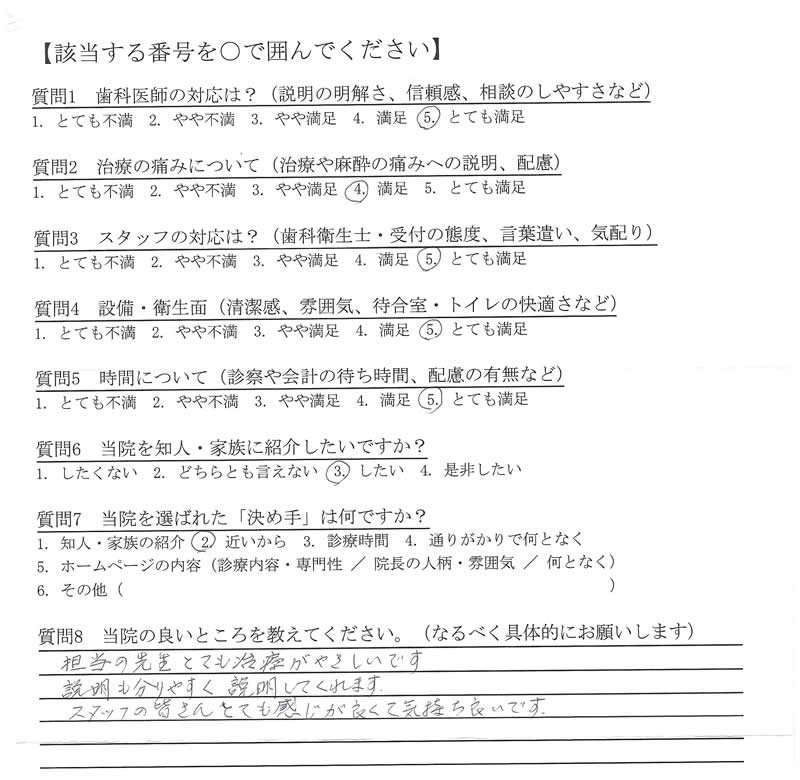 【該当する番号を○で囲んでください】
質問1 歯科医師の対応は？（説明の明解さ、信頼感、相談のしやすさなど）
1. とても不満 2. やや不満 3. やや満足 4. 満足 5. とても満足
質問2 治療の痛みについて（治療や麻酔の痛みへの説明、配慮）
1. とても不満 2. やや不満 3. やや満足 4. 満足 5. とても満足
質問3 スタッフの対応は？（歯科衛生士・受付の態度、言葉遣い、気配り）
1. とても不満 2. やや不満 3. やや満足 4. 満足 5. とても満足
質問4 設備・衛生面（清潔感、雰囲気、待合室・トイレの快適さなど）
1. とても不満 2. やや不満 3. やや満足 4. 満足 5. とても満足
質問5 時間について（診察や会計の待ち時間、配慮の有無など）
1. とても不満 2. やや不満 3. やや満足 4. 満足 5. とても満足
質問6 当院を知人・家族に紹介したいですか？
1. したくない 2. どちらとも言えない 3. したい 4. 是非したい
質問7 当院を選ばれた「決め手」は何ですか？
1. 知人・家族の紹介 2. 近いから 3. 診療時間 4. 通りがかりで何となく
5. ホームページの内容（診療内容・専門性 ／ 院長の人柄・雰囲気 ／ 何となく）
6. その他（ ）
質問8 当院の良いところを教えてください。（なるべく具体的にお願いします）
担当の先生とても治療がやさしいです
説明も分りやすく説明してくれます.
スタッフの皆さんとても感じが良くて気持ち良いです.